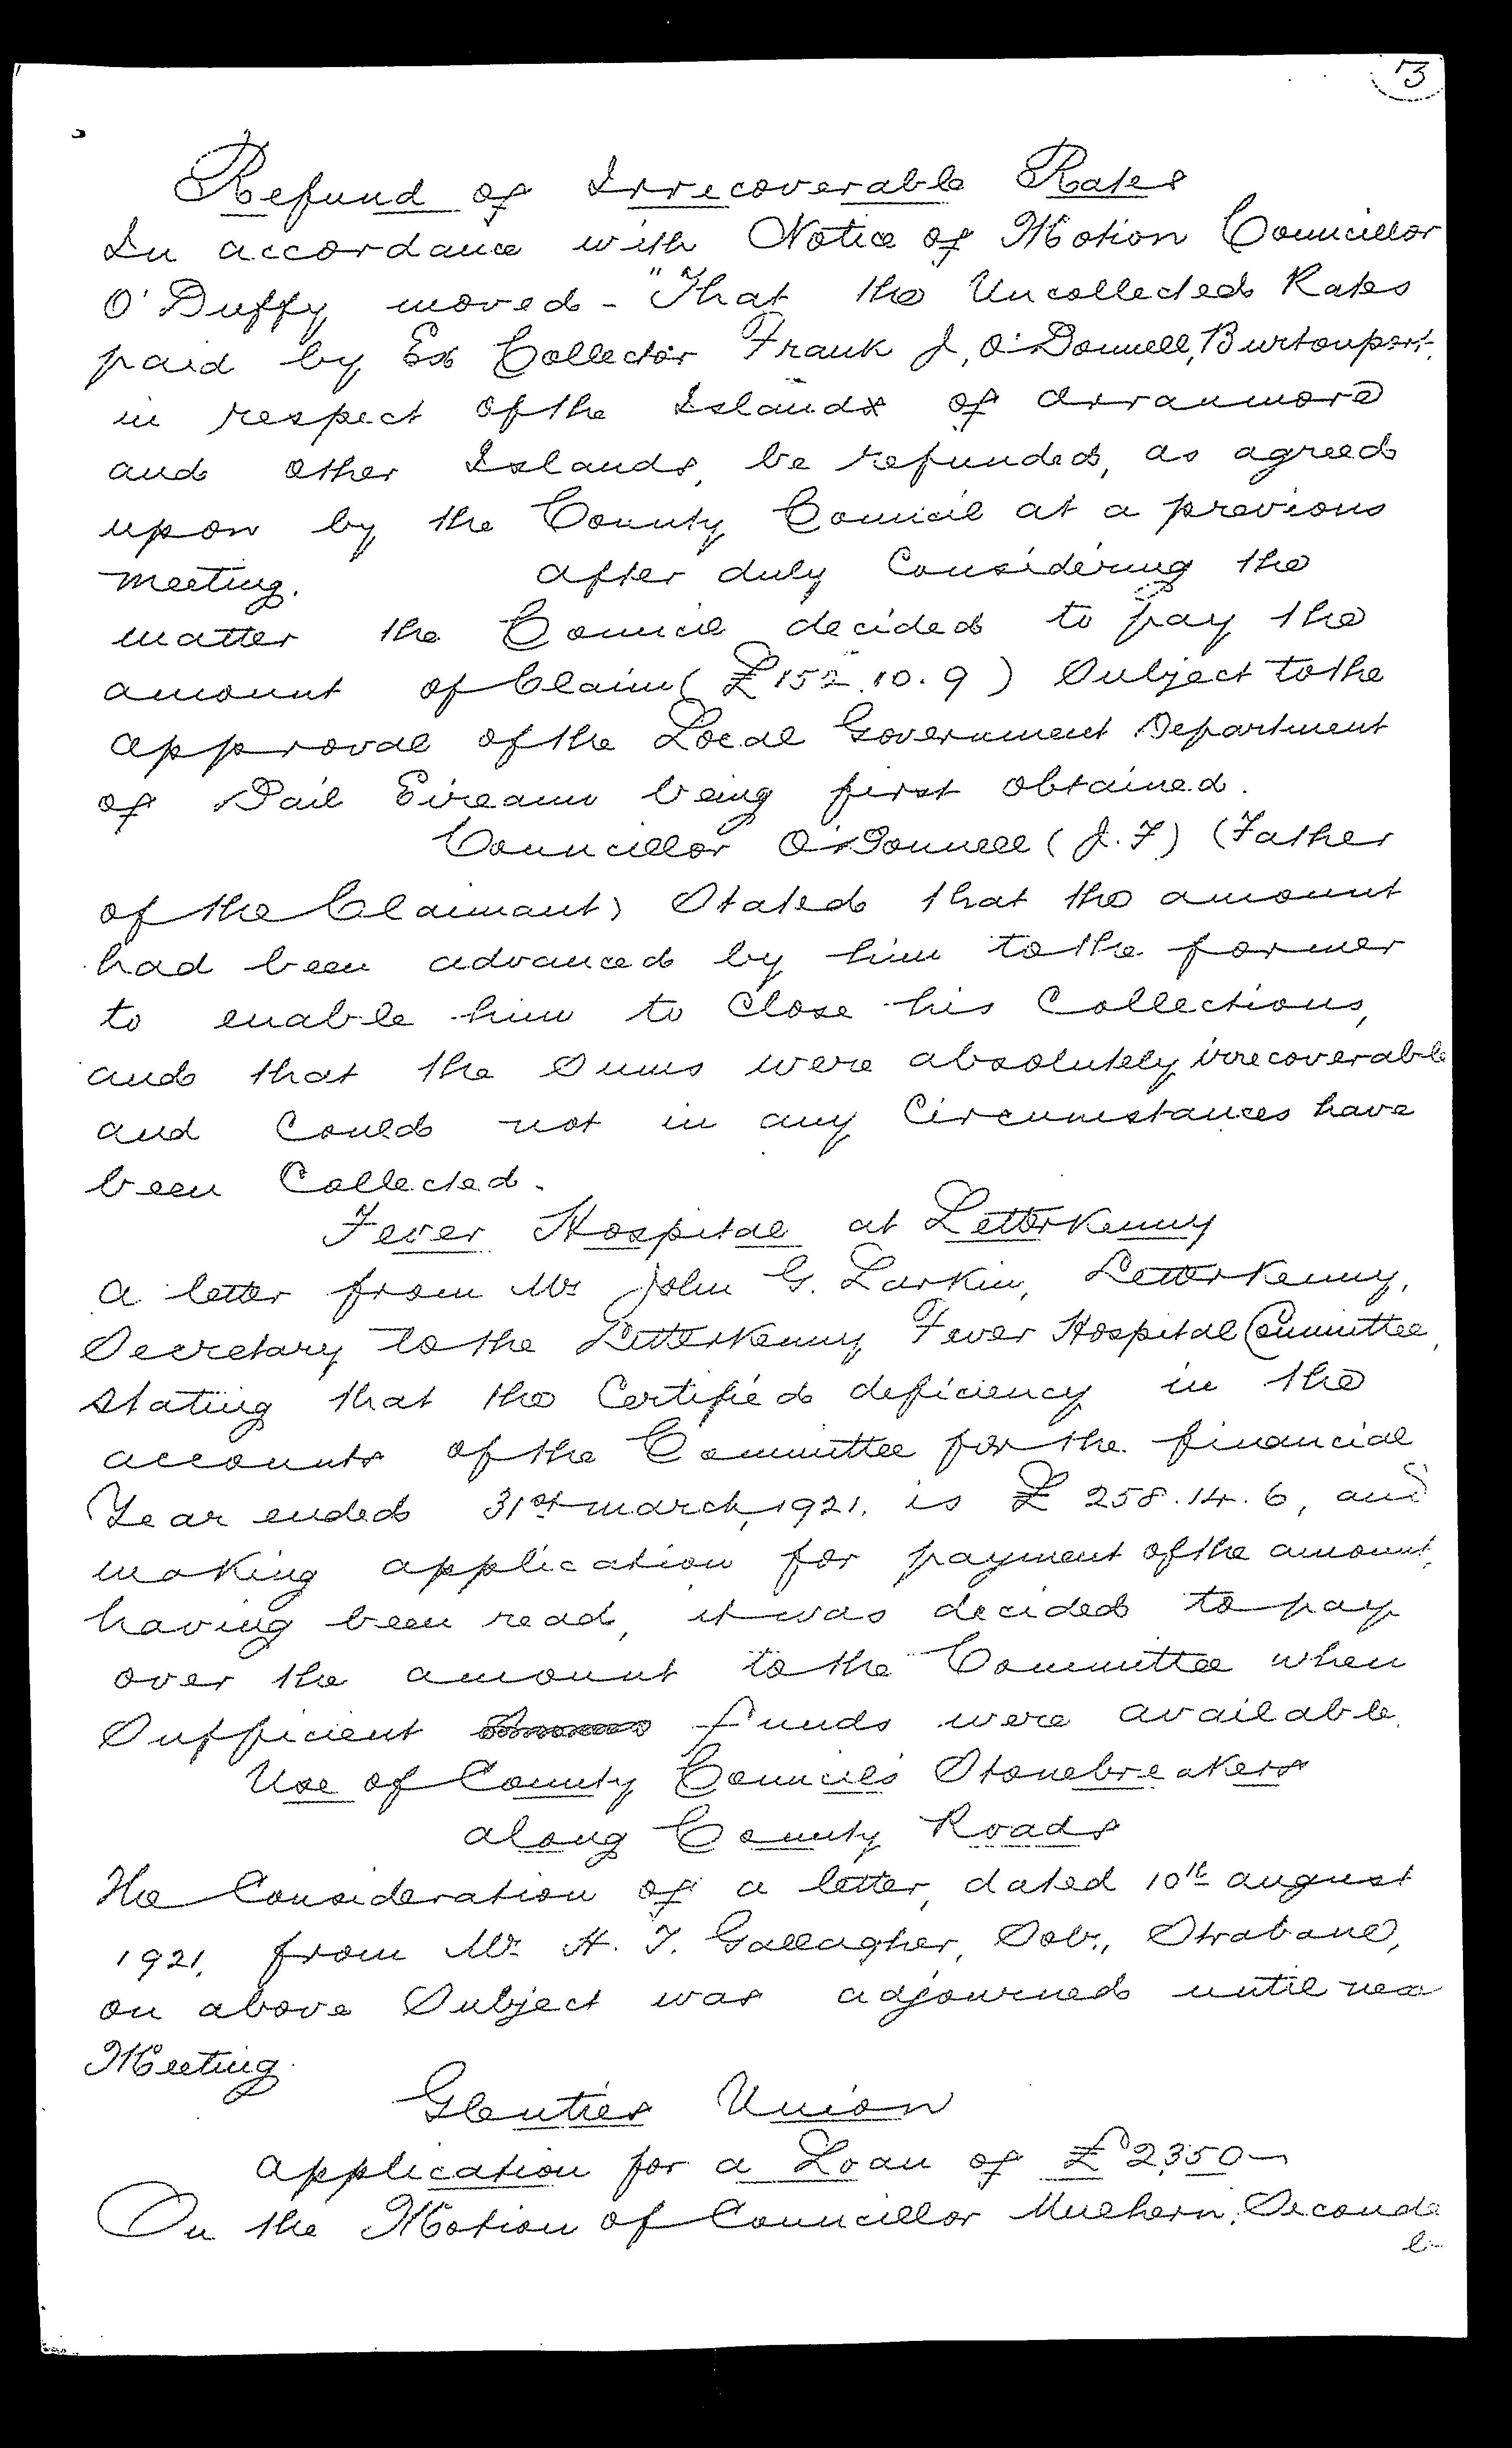 73
Refund of Irrecoverable Rates
In accordance with Notice of Motion Councillor
O'Duffy moved - "That the Uncollected Rates
paid by Ex Collector Frank J, O'Donnell, Burtonport,
in respect of the Island of Arranmore
and other Islands, be refunded, as agreed
upon by the County Council at a previous
meeting. After duly Considering the
matter the Council decided to pay the
amount of Claim ( £152.10.9 ) Subject to the
approval of the Local Government Department
of Dail Eireann being first obtained.
Councillor O'Donnell ( J. F ) (Father
of the Claimant) Stated that the amount
had been advanced by him to the former
to enable him to Close his Collections,
and that the Sums were absolutely irrecoverable
and Could not in any Circumstances have
been Collected.
Fever Hospital at Letterkenny
A letter from Mr John G. Larkin, Letterkenny,
Secretary to the Letterkenny Fever Hospital Committee,
stating that the Certified deficiency in the
accounts of the Committee for the financial
Year ended 31st March, 1921, is £ 258.14.6, and
making application for payment of the amount,
having been read, it was decided to pay
over the amount to the Committee when
Sufficient funds were available.
Use of County Council's Stonebreakers
along County Roads
The Consideration of a letter, dated 10th August
1921, from Mr. H. T. Gallagher, Solr., Strabane,
on above Subject was adjourned until nex
Meeting.
Glenties Union
Application for a Loan of £2350-
On the Motion of Councillor Mulhern, Seconde